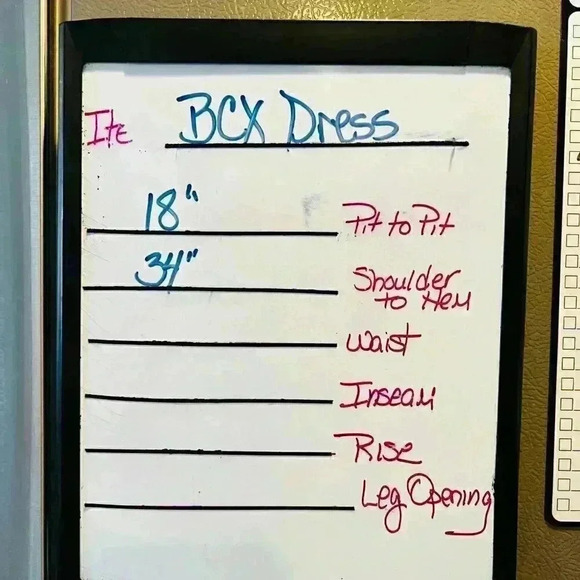 Ite BCX Dress
18" Pit to Pit
34" Shoulder
to Hem
Waist
Inseam
Rise
Leg Opening